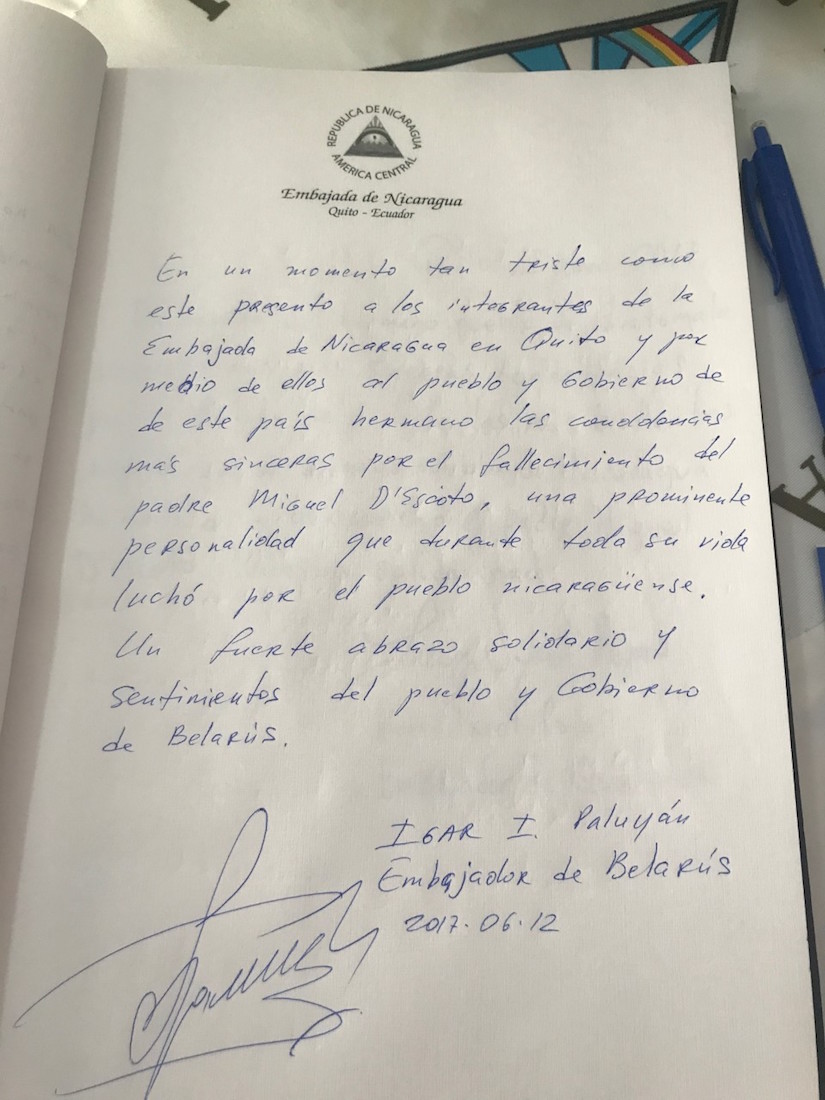 REPÚBLICA DE NICARAGUA
AMERICA CENTRAL
Embajada de Nicaragua
Quito - Ecuador
En un momento tan triste como
este presento a los integrantes de la
Embajada de Nicaragua en Quito y por
medio de ellos al pueblo y Gobierno de
de este país hermano las condolencias
más sinceras por el fallecimiento del
padre Miguel D'Escoto, una prominente
personalidad que durante toda su vida
luchó por el pueblo nicaragüense.
Un fuerte abrazo solidario y
sentimientos del pueblo y Gobierno
de Belarús.
IGAR I. Paluyán
Embajador de Belarús
2017.06.12